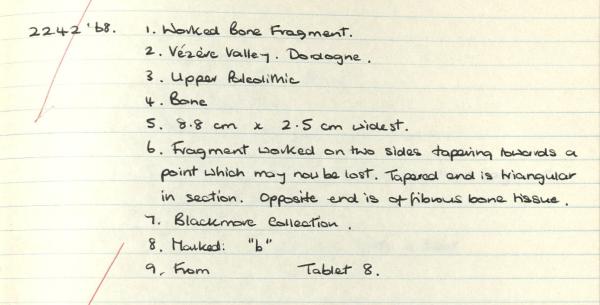 2242 '68. 1. Worked Bone Fragment.
2. Vézère Valley. Dordogne.
3. Upper Paleolithic
4. Bone
5. 8.8 cm x 2.5 cm widest.
6. Fragment worked on two sides tapering towards a
point which may now be lost. Tapered end is triangular
in section. Opposite end is of fibrous bone tissue.
7. Blackmore Collection.
8. Marked: "b"
9. From Tablet 8.